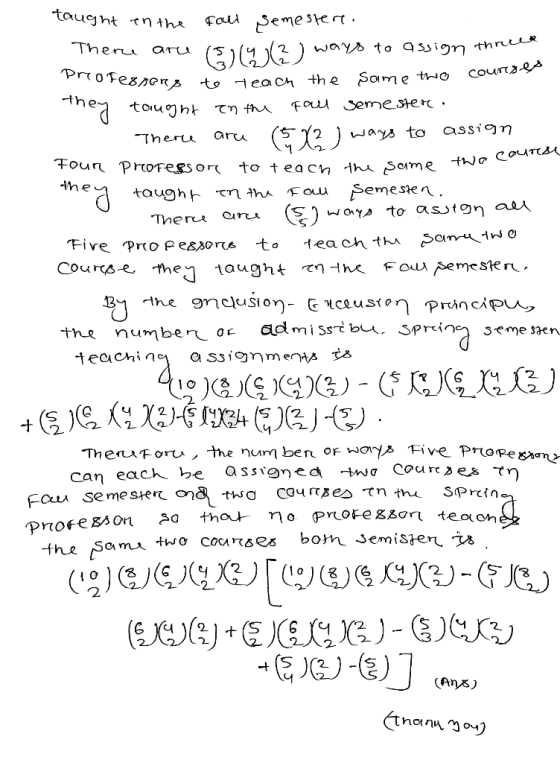 taught in the Fall semester.
There are (5 3)(4 2)(2 2) ways to assign three
professors to teach the same two courses
they taught in the Fall semester.
There are (5 4)(2 2) ways to assign
Four professor to teach the same two course
they taught in the Fall semester.
There are (5 5) ways to assign all
Five professors to teach the same two
course they taught in the Fall semester.
By the Inclusion-Exclusion principle,
the number of admissible. spring semester
teaching assignments is
(10 2)(8 2)(6 2)(4 2)(2 2) - (5 1)(8 2)(6 2)(4 2)(2 2)
+ (5 2)(6 2)(4 2)(2 2) - (5 3)(4 2)(2 2) + (5 4)(2 2) - (5 5).
Therefore, the number of ways Five professors
can each be assigned two courses in
Fall semester and two courses in the spring
professor so that no professor teaches
the same two courses both semister is.
(10 2)(8 2)(6 2)(4 2)(2 2) [(10 2)(8 2)(6 2)(4 2)(2 2) - (5 1)(8 2)
(6 2)(4 2)(2 2) + (5 2)(6 2)(4 2)(2 2) - (5 3)(4 2)(2 2)
+ (5 4)(2 2) - (5 5)] (Ans)
(Thank you)